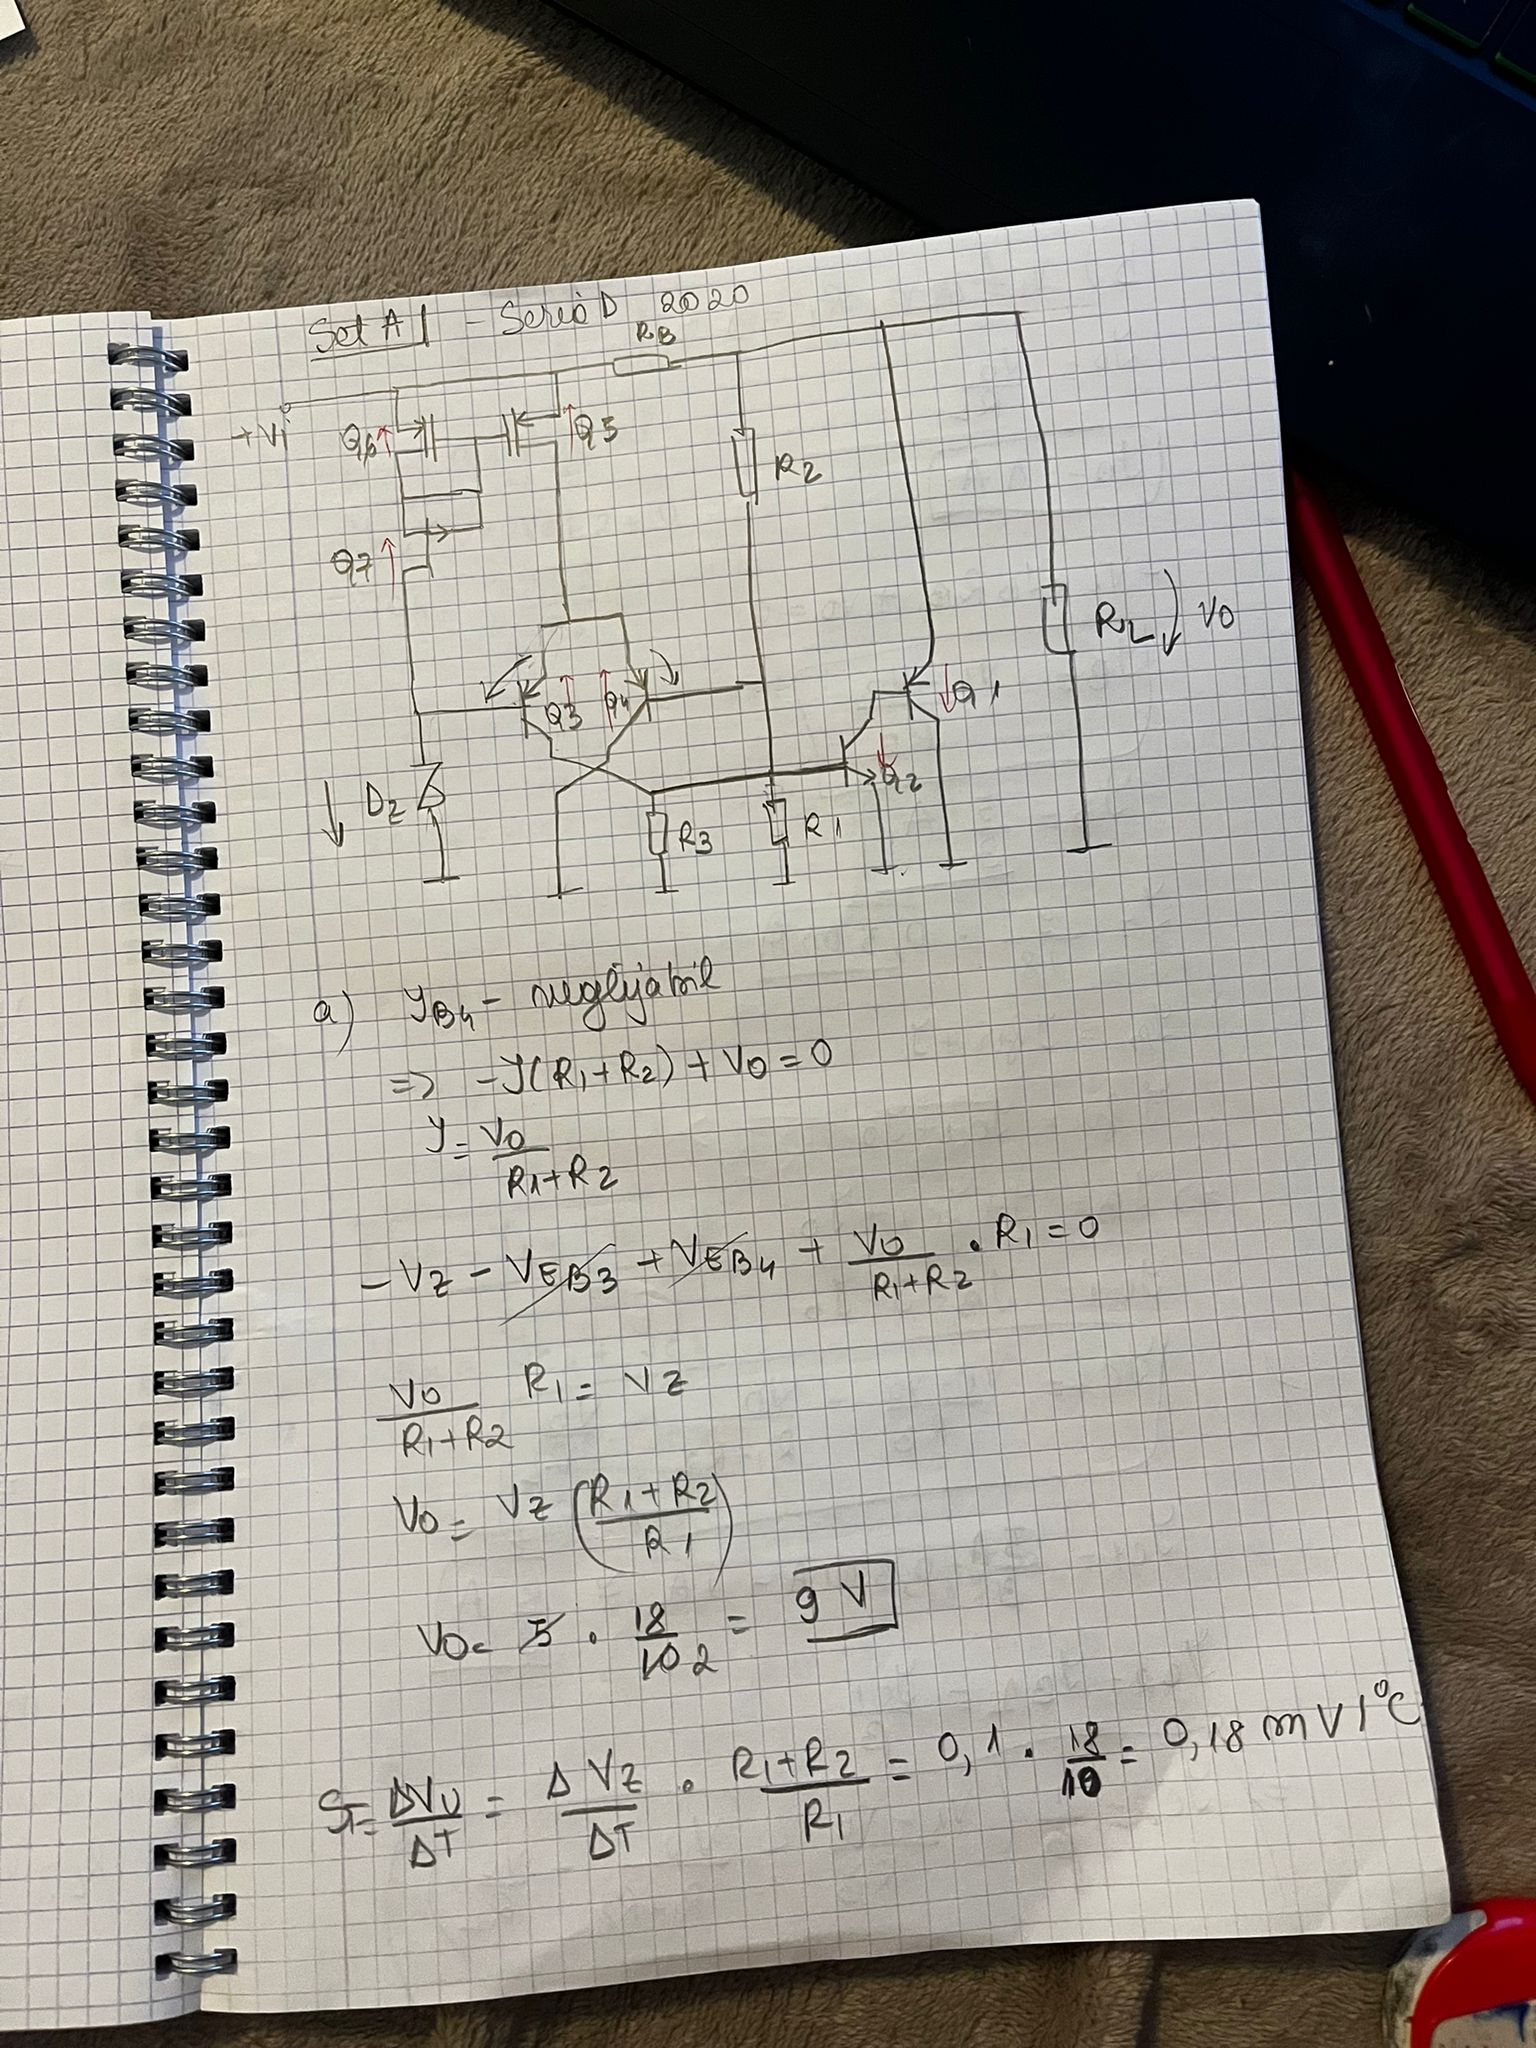 Set A1 - Seria D 2020
RB
+Vi
Q6
Q5
R2
Q7
RL
VO
Q3
Q4
Q1
Q2
DZ
R3
R1
a) IB4 - neglijabil
=> -I(R1+R2) + VO = 0
I = VO / R1+R2
-VZ - VEB3 + VEB4 + VO / R1+R2 . R1 = 0
VO / R1+R2 R1 = VZ
VO = VZ (R1+R2 / R1)
VO = 5 . 18 / 10 2 = 9 V
ST = ΔVO / ΔT = ΔVZ / ΔT . R1+R2 / R1 = 0,1 . 18 / 10 = 0,18 mV/°C